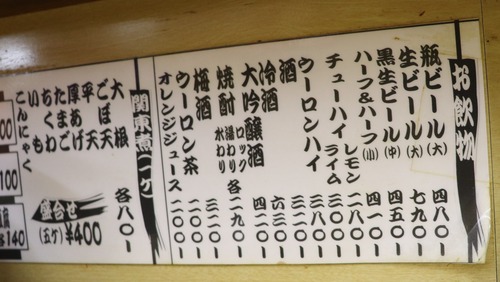 お飲物
瓶ビール(大) 四八〇ー
生ビール(大) 七九〇ー
黒生ビール(中) 四五〇ー
ハーフ&ハーフ(小) 四一〇ー
チューハイ レモン ライム 三八〇ー
ウーロンハイ 三八〇ー
酒
冷酒 六三〇ー
大吟醸酒 四二〇ー
焼酎 ロック 湯わり 水わり 各二九〇ー
梅酒 三二〇ー
ウーロン茶 二〇〇ー
オレンジジュース 二〇〇ー
関東煮(一ケ)
大根
ごぼ天
平天
厚あげ
たまご
ちくわ
いも
こんにゃく
各八〇ー
盛合せ
(五ケ)¥400
00
100
140